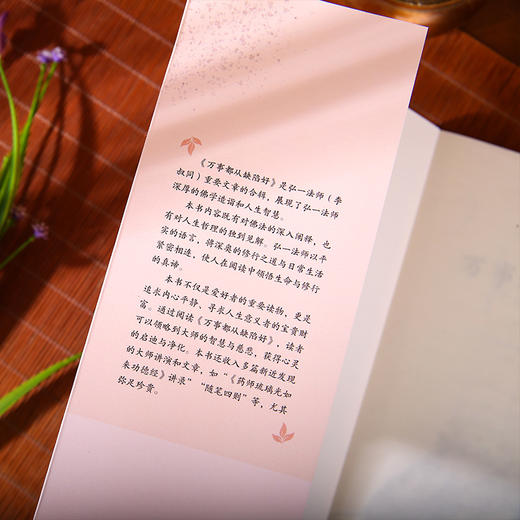 《万事都从缺陷好》是弘一法师（李
叔同）重要文章的合辑，展现了弘一法师
深厚的佛学造诣和人生智慧。
本书内容既有对佛法的深入阐释，也
有对人生哲理的独到见解。弘一法师以平
实的语言，将深奥的修行之道与日常生活
紧密相连，使人在阅读中领悟生命与修行
的真谛。
本书不仅是爱好者的重要读物，更是
追求内心平静、寻求人生意义者的宝贵财
富。通过阅读《万事都从缺陷好》，读者
可以领略到大师的智慧与慈悲，获得心灵
的启迪与净化。本书还收入多篇新近发现
的大师讲演和文章，如“《药师琉璃光如
来功德经》讲录”“随笔四则”等，尤其
弥足珍贵。